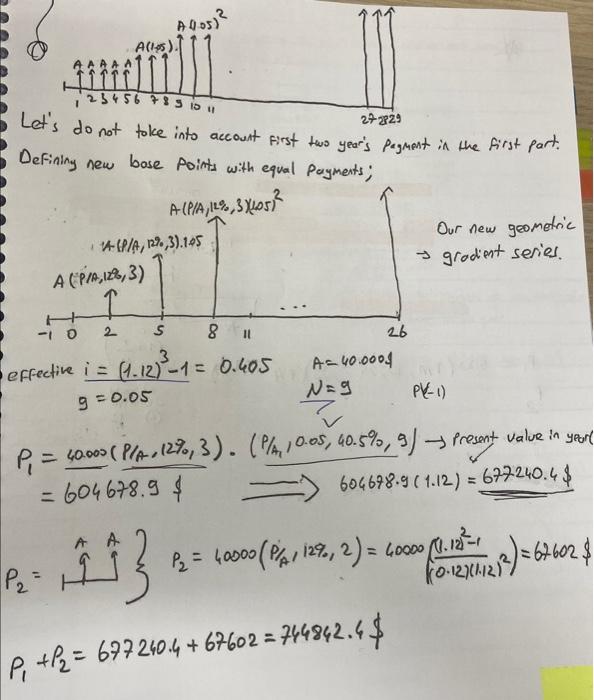 A(1.05)²
A(1.05)
A A A A A
1 2 3 4 5 6 7 8 9 10 11 27 28 29
Let's do not take into account first two year's Payment in the first part.
Defining new base Points with equal Payments;
A(P/A,12%,3)(1.05)²
A(P/A,12%,3).1.05
A(P/A,12%,3)
Our new geometric
→ gradient series.
...
-1 0 2 5 8 11 26
effective i = (1.12)³-1 = 0.405 A=40.000$
g = 0.05 N=9 P(-1)
P₁ = 40.000(P/A,12%,3).(P/A₁,0.05,40.5%,9) → Present value in year(
= 604678.9 $ ⟹ 604678.9(1.12) = 677240.4 $
A A
P₂ = } P₂ = 40000(P/A,12%,2) = 40000((1.12)²-1/(0.12)(1.12)²) = 67602 $
P₁ + P₂ = 677240.4 + 67602 = 744842.4 $